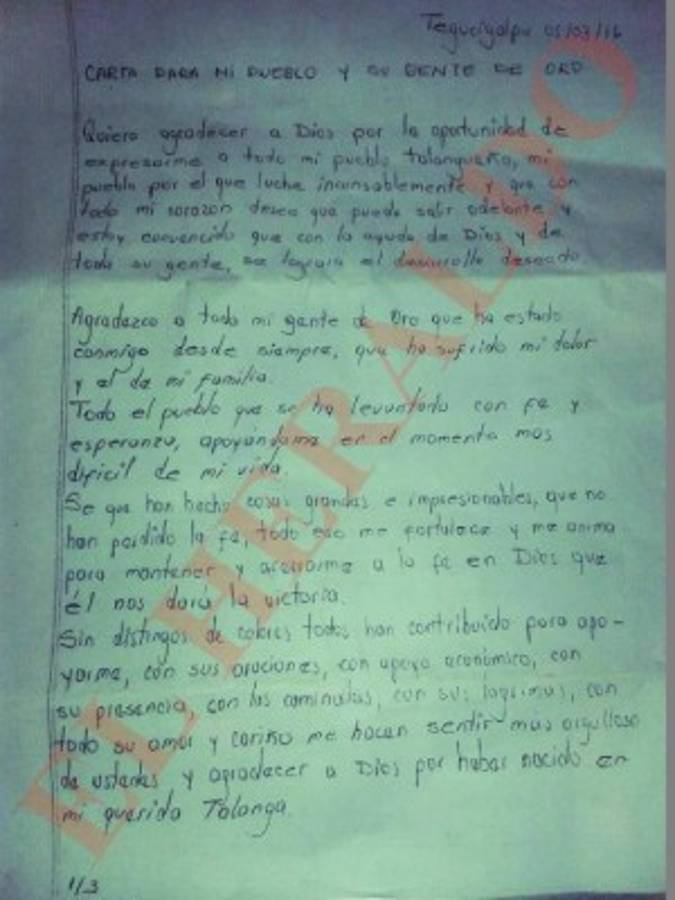 Tegucigalpa 05/03/16
CARTA PARA MI PUEBLO Y SU GENTE DE ORO
Quiero agradecer a Dios por la oportunidad de
expresarme a todo mi pueblo talangueño, mi
pueblo por el que luche incansablemente y que con
todo mi corazon deseo que pueda salir adelante y
estoy convencido que con la ayuda de Dios y de
toda su gente, se lograra el desarrollo deseado
Agradezco a toda mi gente de Oro que ha estado
conmigo desde siempre, que ha sufrido mi dolor
y el de mi familia.
Todo el pueblo que se ha levantado con fe y
esperanza, apoyandome en el momento mas
dificil de mi vida.
Se que han hecho cosas grandes e impresionables, que no
han perdido la fe, todo eso me fortalece y me anima
para mantener y aferrarme a la fe en Dios que
él nos dará la victoria.
Sin distingos de colores todos han contribuido para apo-
yarme, con sus oraciones, con apoyo economico, con
su presencia, con las caminatas, con sus lagrimas, con
todo su amor y cariño me hacen sentir mas orgulloso
de ustedes y agradecer a Dios por haber nacido en
mi querida Talanga.
1/3
EL HERALDO